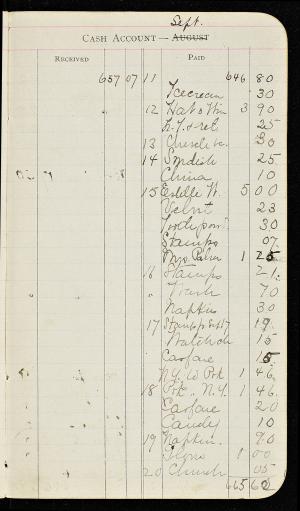 Sept.
CASH ACCOUNT — AUGUST
RECEIVED PAID
657 07 11 646 80
Icecream 30
12 Hat 3 90
N.Y. & ret 25
13 Church 30
14 Sundries 25
China 10
15 Estelle W. 5 00
Velvet 23
30
Stamps 07
Mrs. Palmer 1 25
16 Stamps 21
" Trunk 70
Napkin 30
17 Stamps 19
Watch 15
Carfare 15
N.Y. W. Prk 1 46
18 Prk. N.Y. 1 46
Carfare 20
Candy 10
19 Napkin. 90
1 00
20 Church 05
665 62